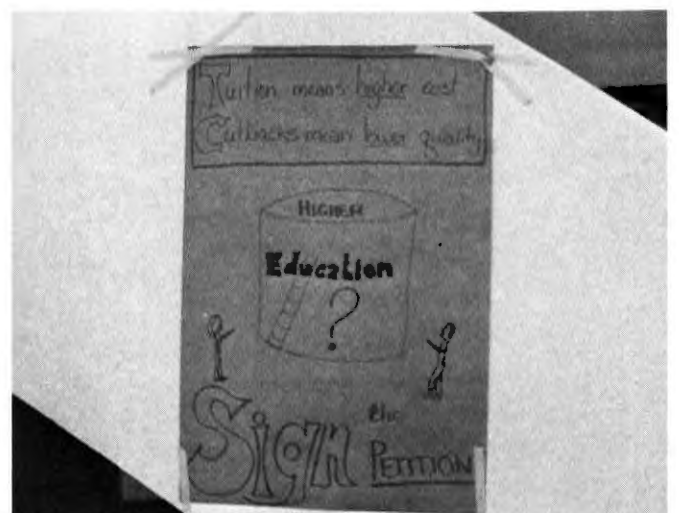 Tuition means higher cost
Cutbacks mean lower quality
HIGHER
Education
?
Sign the
PETITION